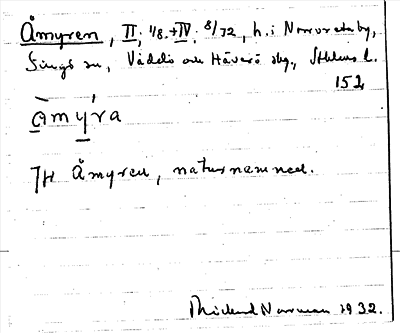 Åmyren, II, 1/8. + IV. 8/32, h. i Norrvreta by,
Singö sn, Väddö och Häverö skg., Sthlms l.
152
àmy̱ra
Jfr Åmyren, naturnamned.
Rickard Norrman 1932.